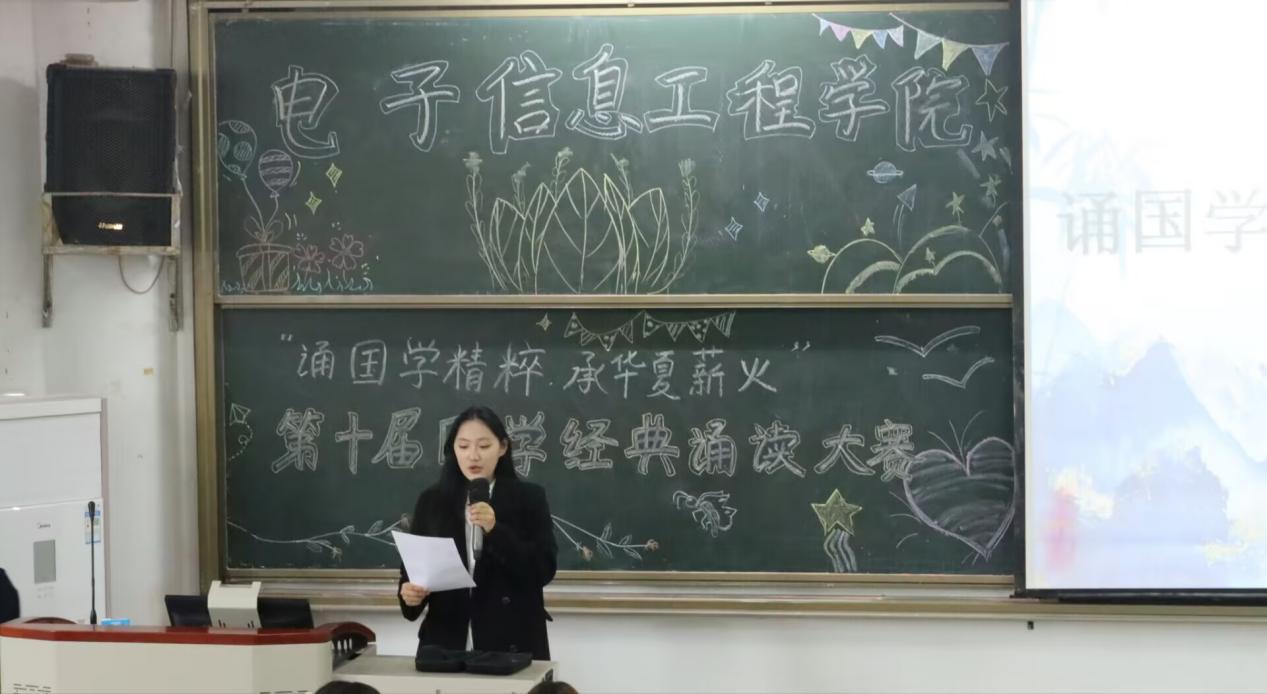 电子信息工程学院
"诵国学精粹.承华夏薪火"
第十届 学经典诵读大赛
诵国学
Midea